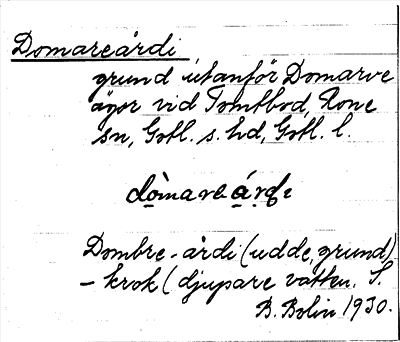 Domareårdi
grund utanför Domarve
ägor vid Tomtbod, Rone
sn, Gotl. s. hd, Gotl. l.
dòmareárdi
Dombre-årdi (udde, grund)
- krok (djupare vatten. S.
B. Bolin 1930.